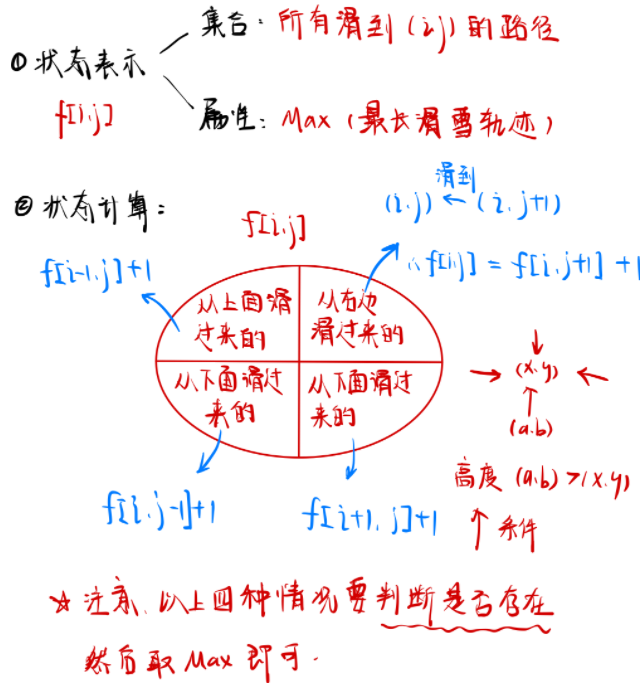 ① 状态表示
f[i,j]
集合: 所有滑到 (i,j) 的路径
属性: Max (最长滑雪轨迹)
② 状态计算:
f[i,j]
滑到
(i,j) ← (i,j+1)
∴ f[i,j] = f[i,j+1] + 1
f[i-1,j]+1
从上面滑
过来的
从右边
滑过来的
从下面滑过
来的
从下面滑过
来的
f[i,j-1]+1
f[i+1,j]+1
→ (x,y) ←
(a,b)
高度 (a,b) > (x,y)
↑ 条件
☆ 注意、以上四种情况要判断是否存在
然后取 Max 即可.